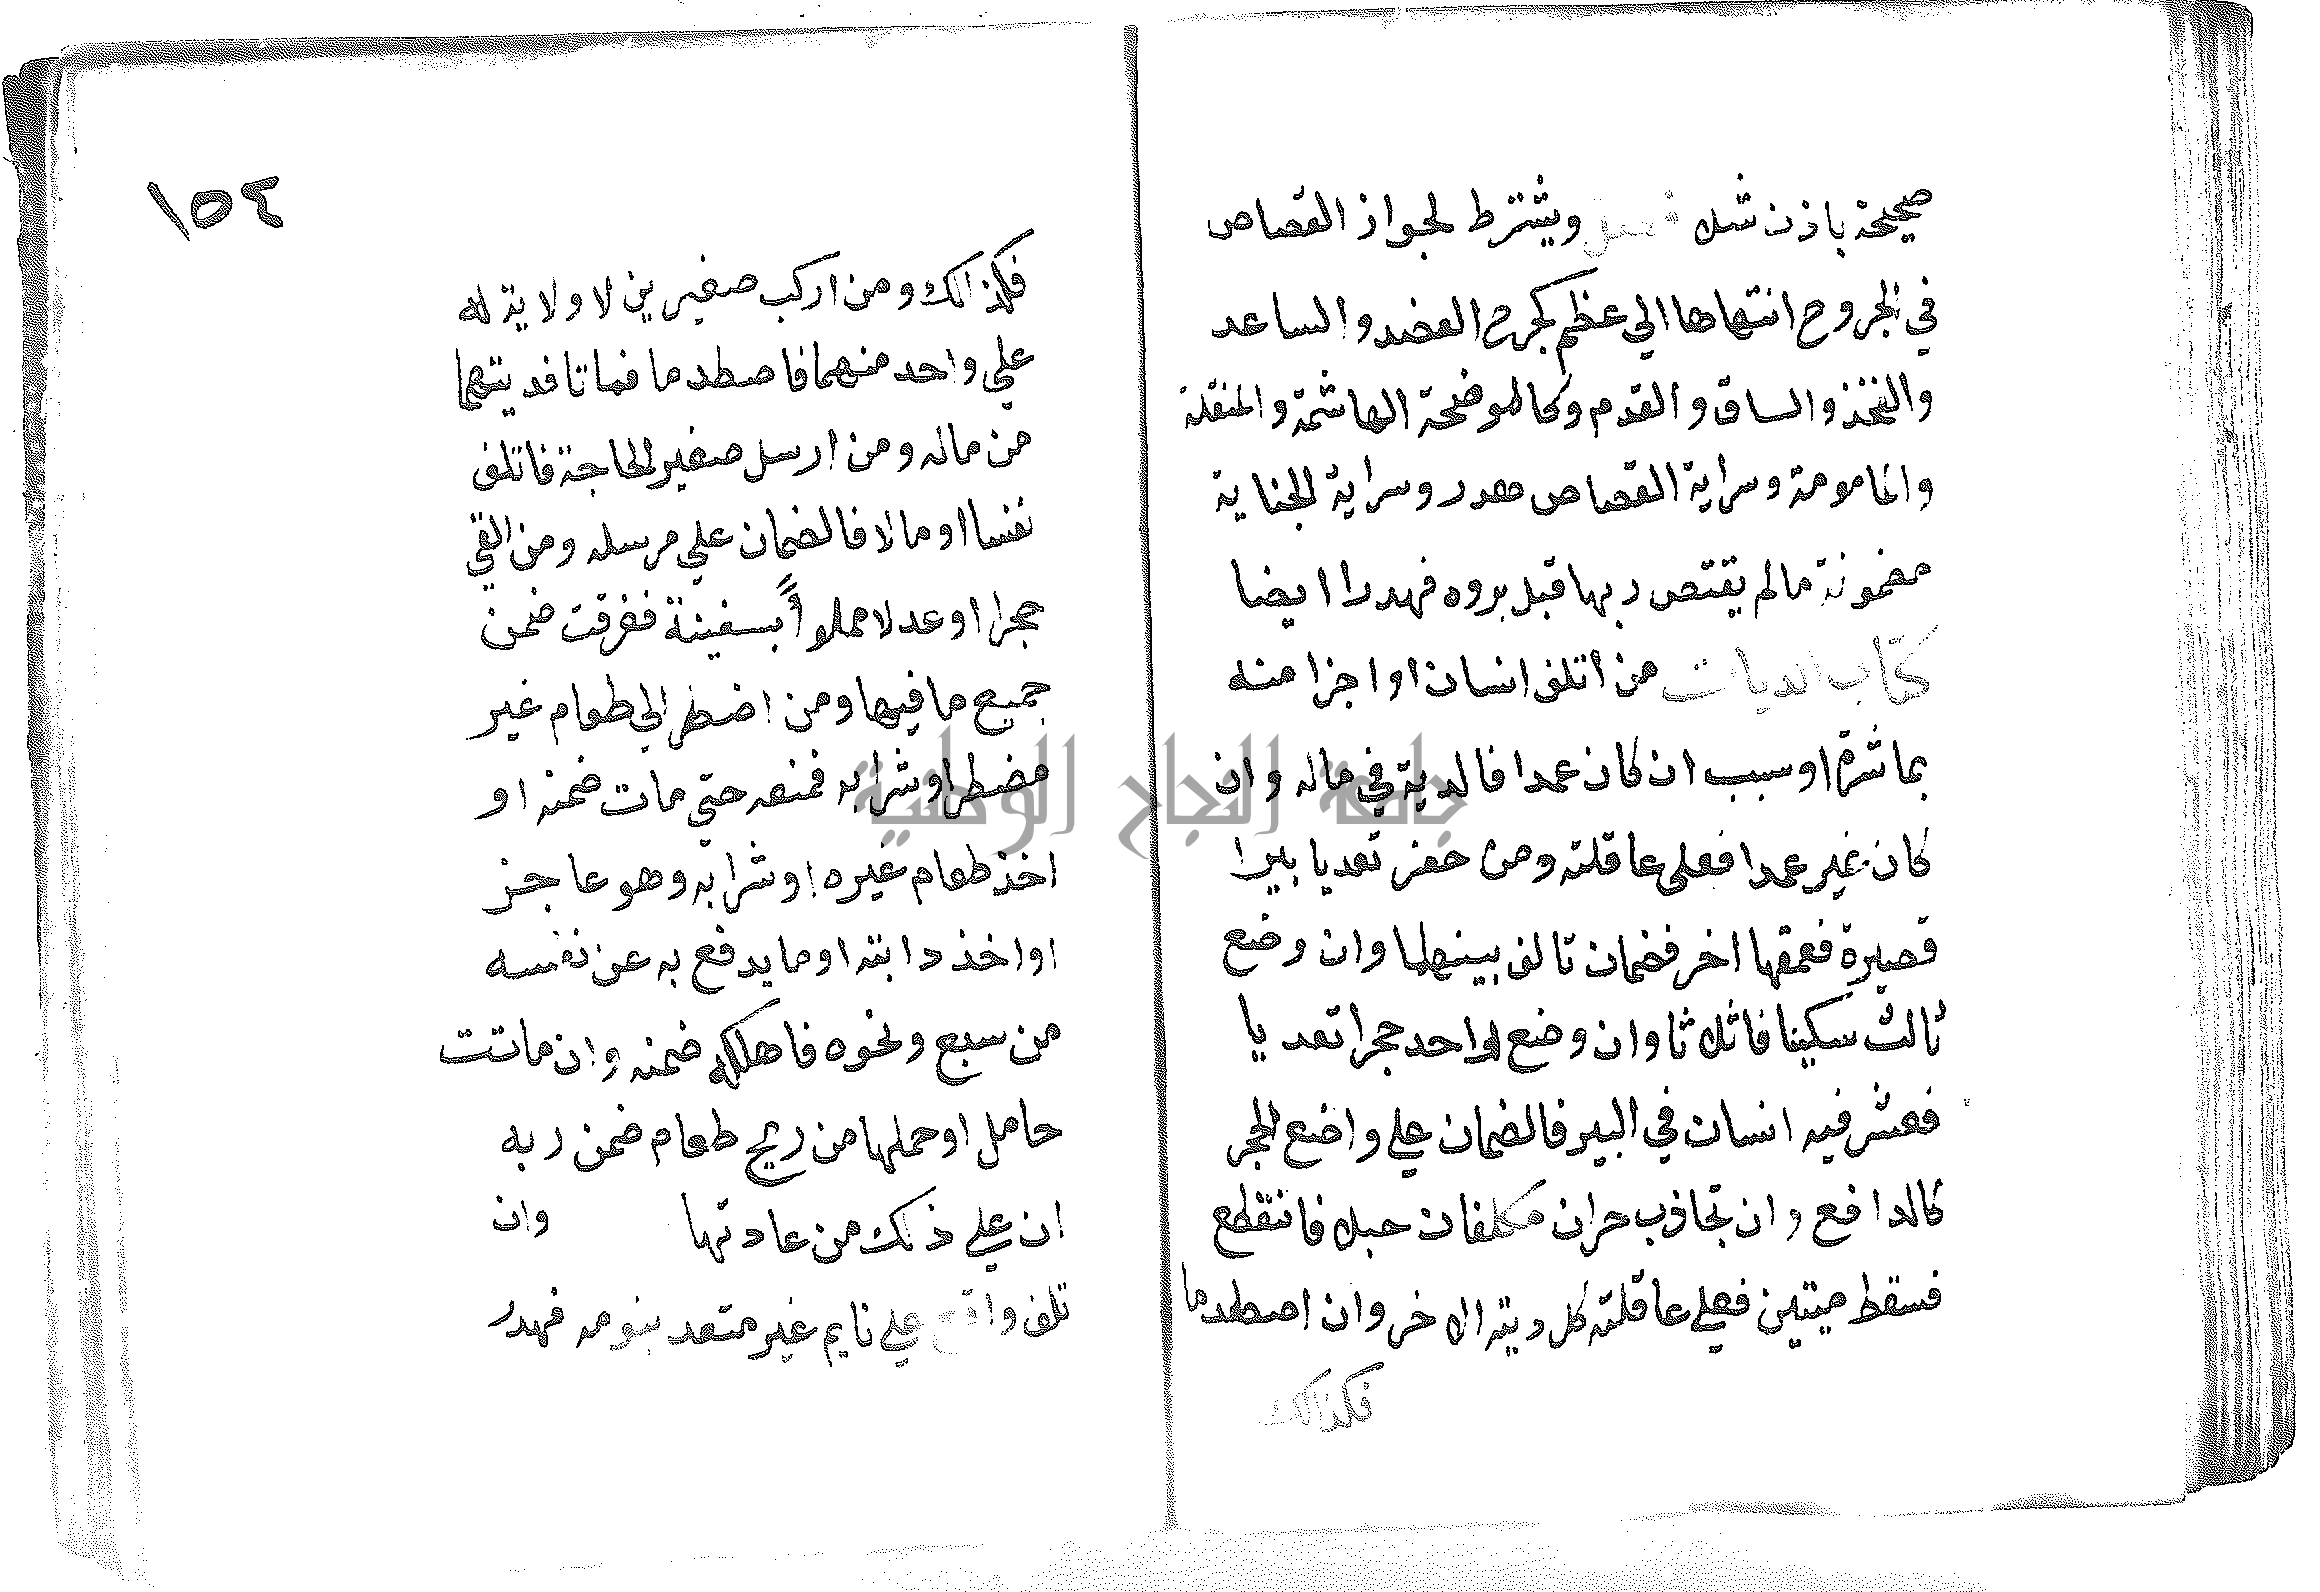 صحيحة باذن شلا فصل ويشترط لجواز القصاص
في الجروح انتهاها الي عظم كجرح العضد والساعد
والفخذ والساق والقدم وكالموضحة الهاشمة والمنقلة
والمامومة وسراية القصاص هدر وسراية الجناية
مضمونة مالم يقتص ربها قبل بروه فهدرا ايضا
كتاب الديات من اتلف انسان او اجزا منه
بماشرة او سبب ان كان عمدا فالدية في ماله وان
كان غير عمدا فعلى عاقلته ومن حفر تعديا بيرا
قصيرة فعمقها اخر فضمان تالف بينهما وان وضع
ثالث سكينا فاثلاثا وان وضع لواحد حجرا تعديا
فعثر فيه انسان في البير فالضمان علي واضع الحجر
كالدافع وان تجاذب حران مكلفان حبلا فانقطع
فسقط ميتين فعلي عاقلته كل ديته الاخر وان اصطدما
فكذالك
١٥٤
فكذالك ومن اركب صغيرين لا ولاية له
علي واحد منهما فاصطدما فماتا فديتهما
من ماله ومن ارسل صغير لحاجة فاتلف
نفسا او مالا فالضمان علي مرسله ومن القي
حجرا او عدلا مملوأً بسفينة فغرقت ضمن
جميع ما فيها ومن اضطر الي طعام غير
مضطر او شرابه فمنعه حتي مات ضمنه او
اخذ طعام غيره او شرابه وهو عاجز
او اخذ دابته او ما يدفع به عن نفسه
من سبع ونحوه فاهلكه ضمنه وان ماتت
حامل او حملها من ريح طعام ضمن ربه
ان علي ذلك من عادتها وان
تلف واقع علي نايم غير متعد بنومه فهدر
جامعة النجاح الوطنية